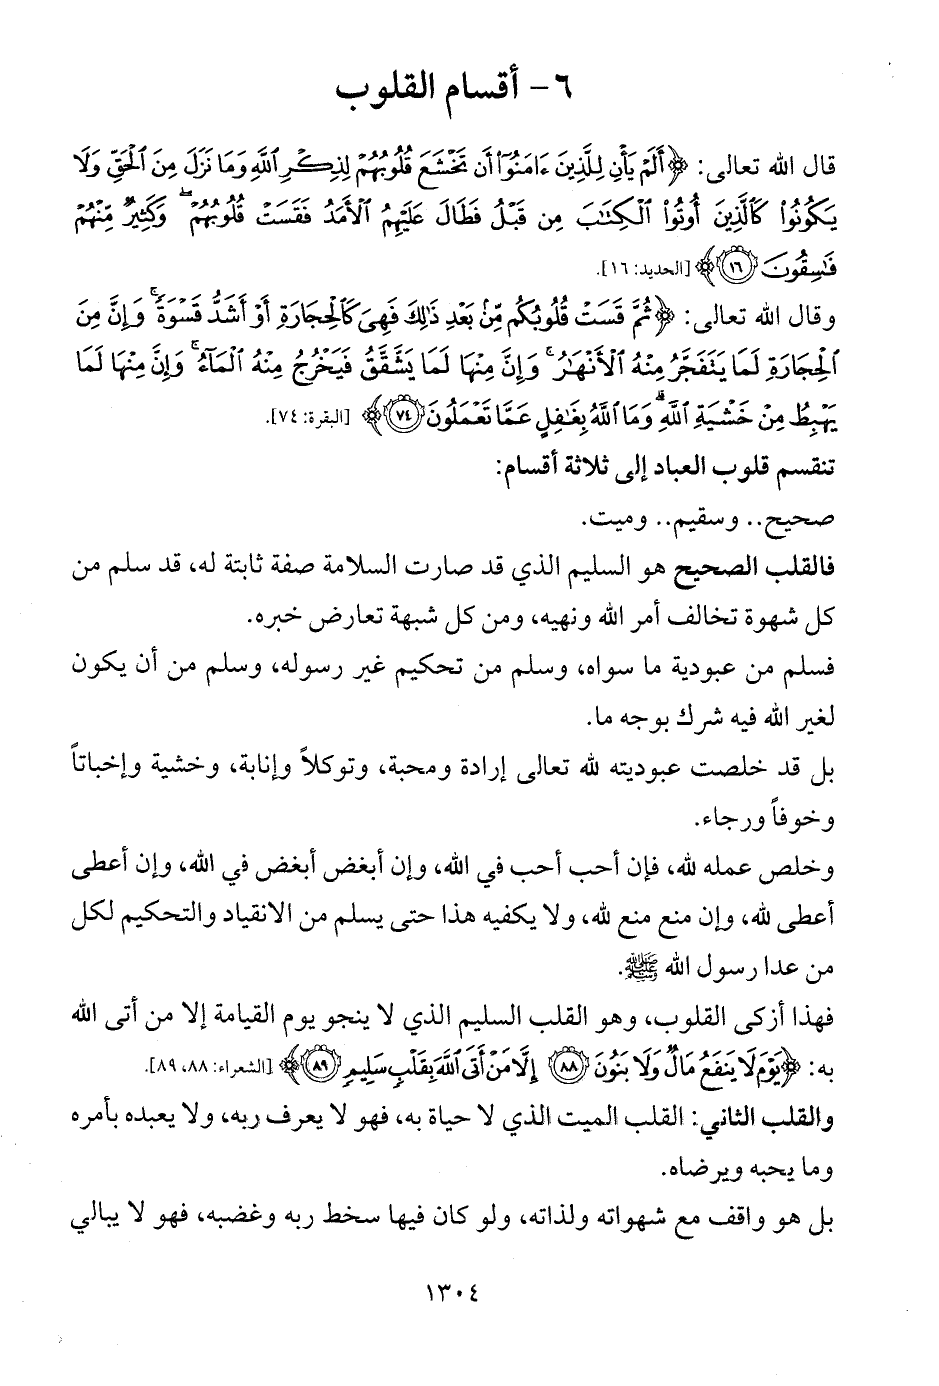 ٦- أقسام القلوب
قال الله تعالى: ﴿أَلَمْ يَأْنِ لِلَّذِينَ ءَامَنُوٓا۟ أَن تَخْشَعَ قُلُوبُهُمْ لِذِكْرِ ٱللَّهِ وَمَا نَزَلَ مِنَ ٱلْحَقِّ وَلَا
يَكُونُوا۟ كَٱلَّذِينَ أُوتُوا۟ ٱلْكِتَٰبَ مِن قَبْلُ فَطَالَ عَلَيْهِمُ ٱلْأَمَدُ فَقَسَتْ قُلُوبُهُمْ ۖ وَكَثِيرٌ مِّنْهُمْ
فَٰسِقُونَ ١٦﴾ [الحديد: ١٦].
وقال الله تعالى: ﴿ثُمَّ قَسَتْ قُلُوبُكُم مِّنۢ بَعْدِ ذَٰلِكَ فَهِىَ كَٱلْحِجَارَةِ أَوْ أَشَدُّ قَسْوَةً ۚ وَإِنَّ مِنَ
ٱلْحِجَارَةِ لَمَا يَتَفَجَّرُ مِنْهُ ٱلْأَنْهَٰرُ ۚ وَإِنَّ مِنْهَا لَمَا يَشَّقَّقُ فَيَخْرُجُ مِنْهُ ٱلْمَآءُ ۚ وَإِنَّ مِنْهَا لَمَا
يَهْبِطُ مِنْ خَشْيَةِ ٱللَّهِ ۗ وَمَا ٱللَّهُ بِغَٰفِلٍ عَمَّا تَعْمَلُونَ ٧٤﴾ [البقرة: ٧٤].
تنقسم قلوب العباد إلى ثلاثة أقسام:
صحيح.. وسقيم.. وميت.
فالقلب الصحيح هو السليم الذي قد صارت السلامة صفة ثابتة له، قد سلم من
كل شهوة تخالف أمر الله ونهيه، ومن كل شبهة تعارض خبره.
فسلم من عبودية ما سواه، وسلم من تحكيم غير رسوله، وسلم من أن يكون
لغير الله فيه شرك بوجه ما.
بل قد خلصت عبوديته لله تعالى إرادة ومحبة، وتوكلاً وإنابة، وخشية وإخباتاً
وخوفاً ورجاء.
وخلص عمله لله، فإن أحب أحب في الله، وإن أبغض أبغض في الله، وإن أعطى
أعطى لله، وإن منع منع لله، ولا يكفيه هذا حتى يسلم من الانقياد والتحكيم لكل
من عدا رسول الله ﷺ.
فهذا أزكى القلوب، وهو القلب السليم الذي لا ينجو يوم القيامة إلا من أتى الله
به: ﴿يَوْمَ لَا يَنفَعُ مَالٌ وَلَا بَنُونَ ٨٨ إِلَّا مَنْ أَتَى ٱللَّهَ بِقَلْبٍ سَلِيمٍ ٨٩﴾ [الشعراء: ٨٨، ٨٩].
والقلب الثاني: القلب الميت الذي لا حياة به، فهو لا يعرف ربه، ولا يعبده بأمره
وما يحبه ويرضاه.
بل هو واقف مع شهواته ولذاته، ولو كان فيها سخط ربه وغضبه، فهو لا يبالي
١٣٠٤